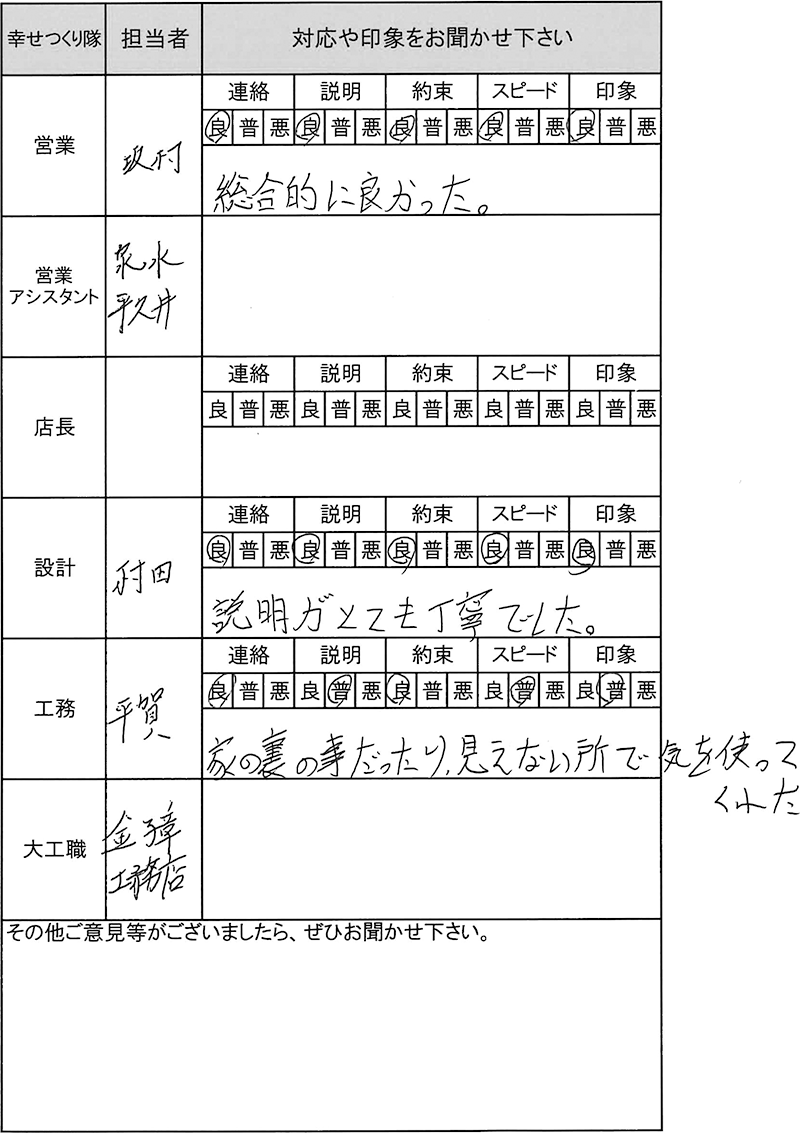 幸せつくり隊 担当者 対応や印象をお聞かせ下さい
連絡 説明 約束 スピード 印象
良 普 悪 良 普 悪 良 普 悪 良 普 悪 良 普 悪
営業
坂村
総合的に良かった。
営業
アシスタント
泉水
平久井
連絡 説明 約束 スピード 印象
良 普 悪 良 普 悪 良 普 悪 良 普 悪 良 普 悪
店長
連絡 説明 約束 スピード 印象
良 普 悪 良 普 悪 良 普 悪 良 普 悪 良 普 悪
設計
村田
説明がとても丁寧でした。
連絡 説明 約束 スピード 印象
良 普 悪 良 普 悪 良 普 悪 良 普 悪 良 普 悪
工務
平賀
家の裏の事だったり、見えない所で気を使って
くれた
大工職
工務店
その他ご意見等がございましたら、ぜひお聞かせ下さい。